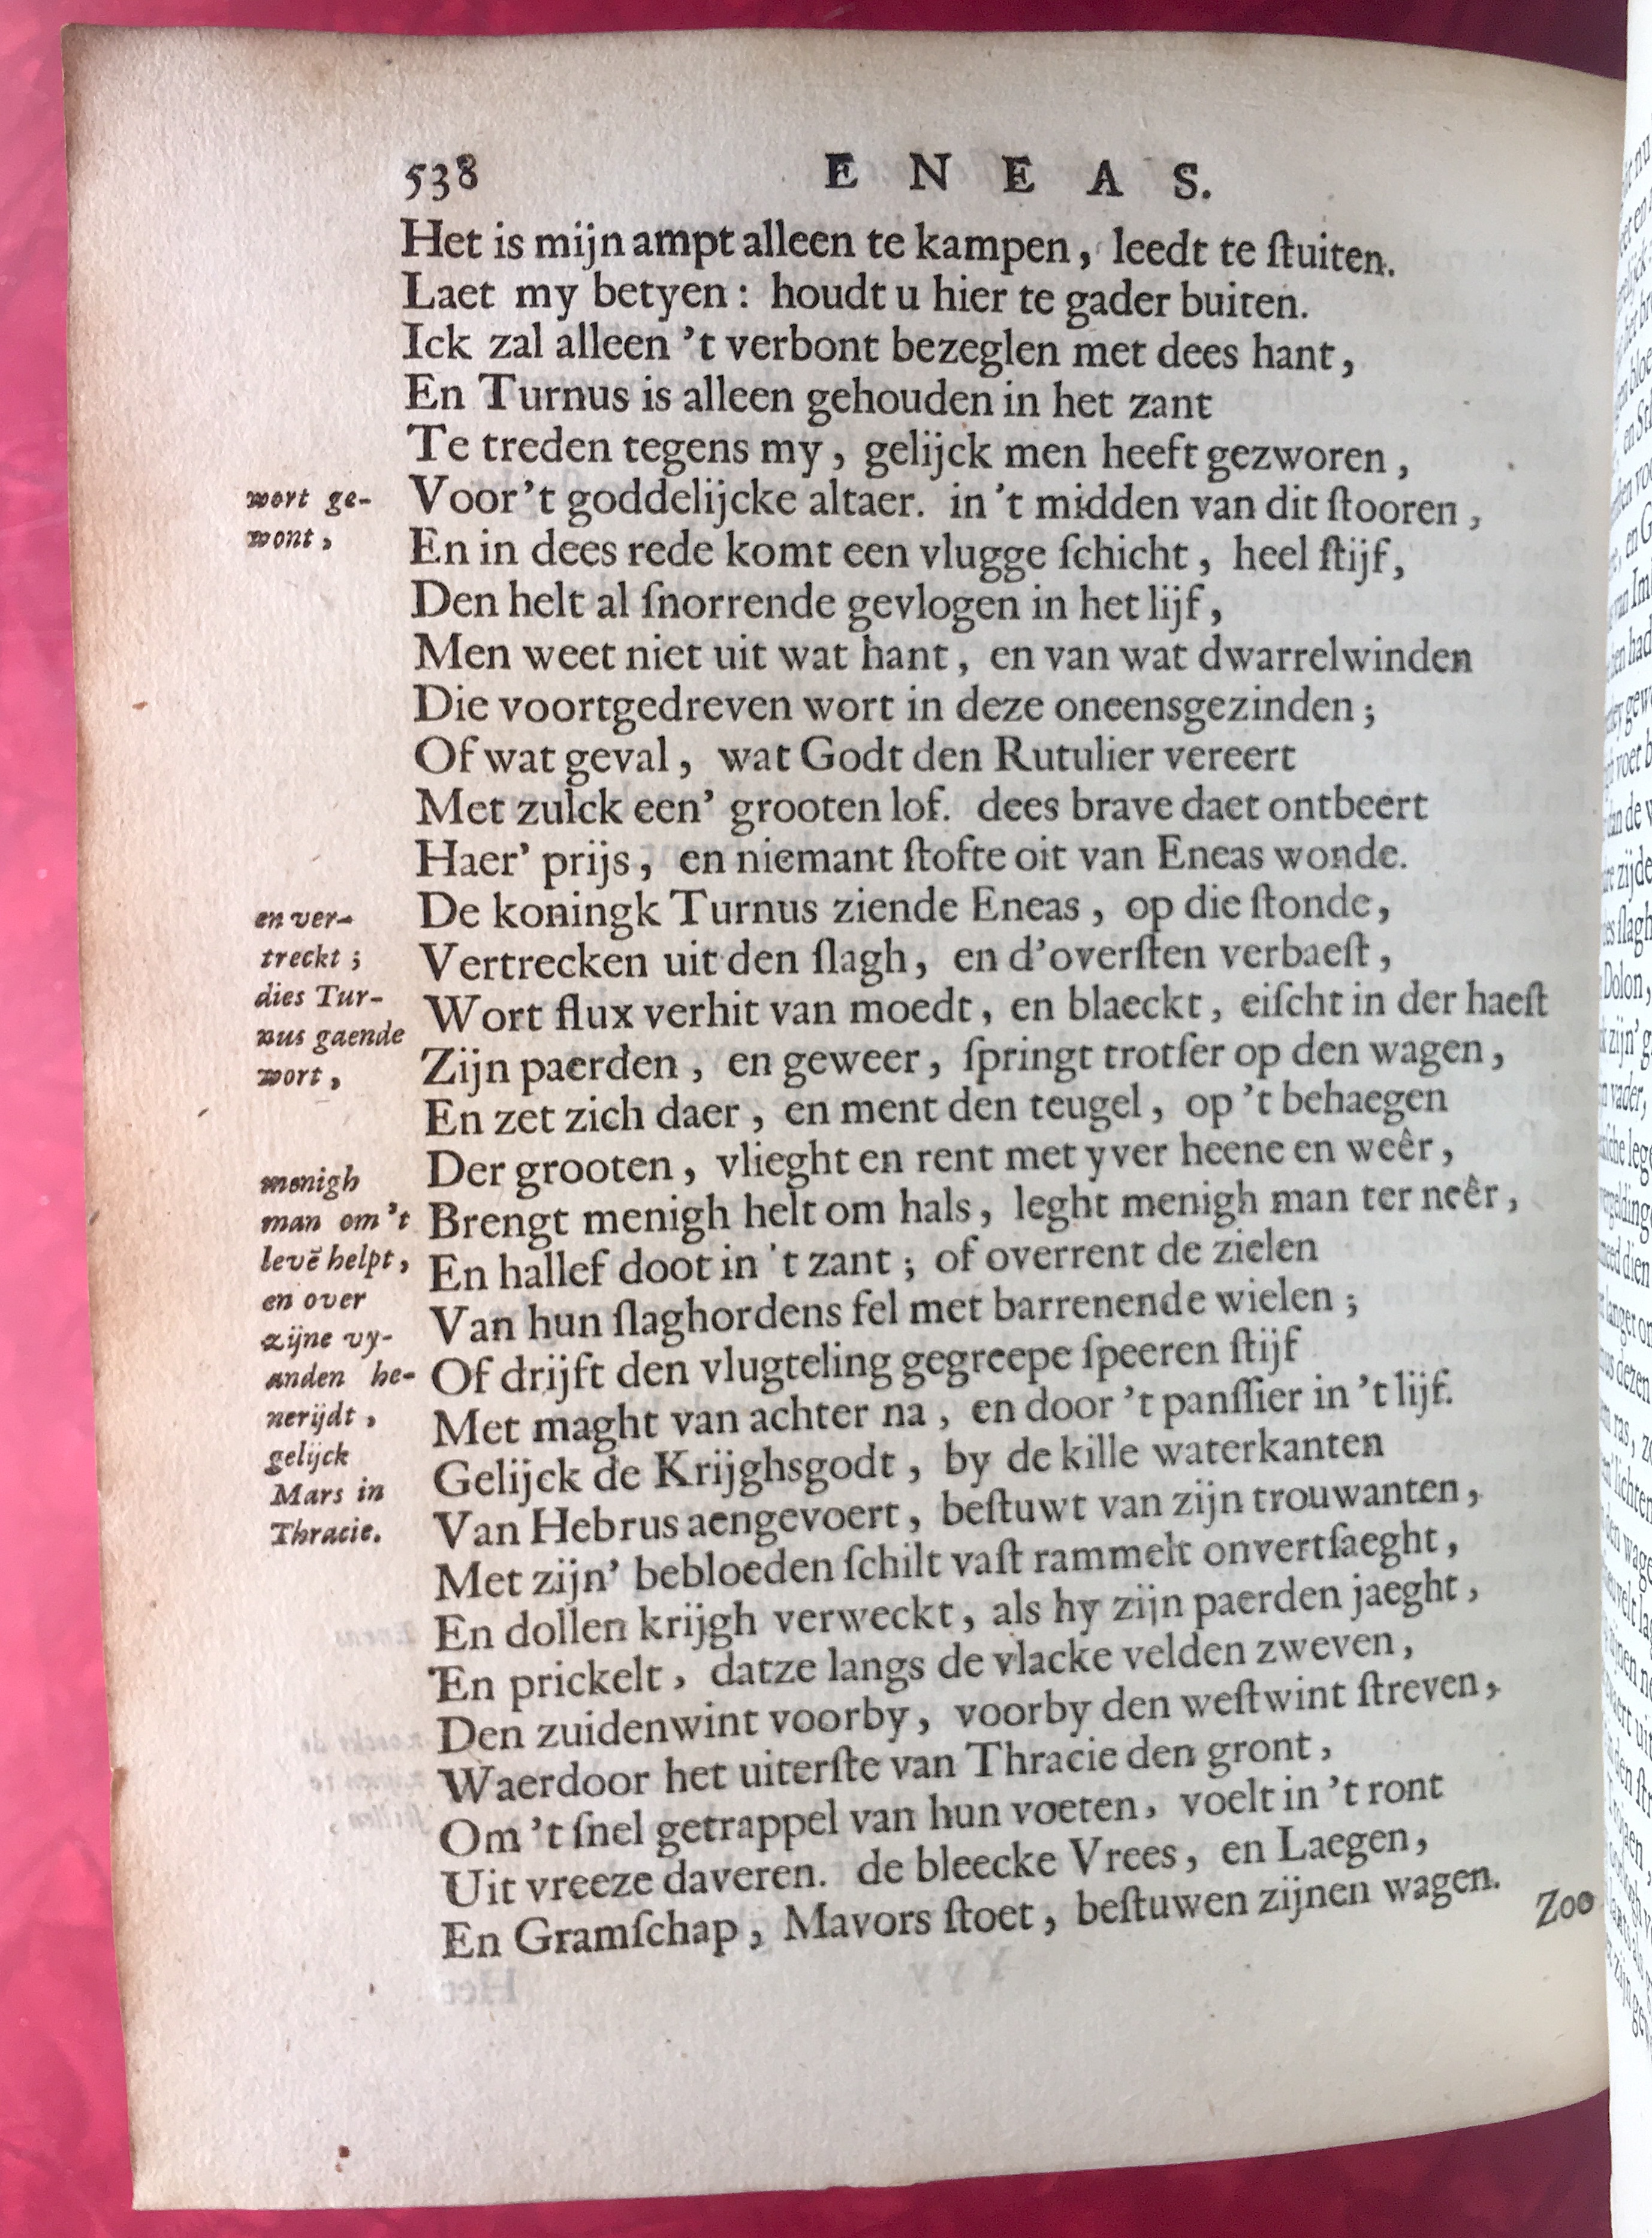 538 ENEAS.
Het is mijn ampt alleen te kampen, leedt te ſtuiten.
Laet my betyen: houdt u hier te gader buiten.
Ick zal alleen 't verbont bezeglen met dees hant,
En Turnus is alleen gehouden in het zant
Te treden tegens my, gelijck men heeft gezworen,
Voor't goddelijcke altaer. in 't midden van dit ſtooren,
En in dees rede komt een vlugge ſchicht, heel ſtijf,
Den helt al ſnorrende gevlogen in het lijf,
Men weet niet uit wat hant, en van wat dwarrelwinden
Die voortgedreven wort in deze oneensgezinden;
Of wat geval, wat Godt den Rutulier vereert
Met zulck een' grooten lof. dees brave daet ontbeert
Haer' prijs, en niemant ſtofte oit van Eneas wonde.
De koningk Turnus ziende Eneas, op die ſtonde,
Vertrecken uit den ſlagh, en d'overſten verbaeſt,
Wort flux verhit van moedt, en blaeckt, eiſcht in der haeſt
Zijn paerden, en geweer, ſpringt trotſer op den wagen,
En zet zich daer, en ment den teugel, op 't behaegen
Der grooten, vlieght en rent met yver heene en weêr,
Brengt menigh helt om hals, leght menigh man ter neêr,
En hallef doot in 't zant; of overrent de zielen
Van hun ſlaghordens fel met barrenende wielen;
Of drijft den vlugteling gegreepe ſpeeren ſtijf
Met maght van achter na, en door 't panſſier in 't lijf.
Gelijck de Krijghsgodt, by de kille waterkanten
Van Hebrus aengevoert, beſtuwt van zijn trouwanten,
Met zijn' bebloeden ſchilt vaſt rammelt onvertſaeght,
En dollen krijgh verweckt, als hy zijn paerden jaeght,
En prickelt, datze langs de vlacke velden zweven,
Den zuidenwint voorby, voorby den weſtwint ſtreven,
Waerdoor het uiterſte van Thracie den gront,
Om 't ſnel getrappel van hun voeten, voelt in 't ront
Uit vreeze daveren. de bleecke Vrees, en Laegen,
En Gramſchap, Mavors ſtoet, beſtuwen zijnen wagen.
Zoo
wort ge-
wont,
en ver-
treckt;
dies Tur-
nus gaende
wort,
menigh
man om't
levẽ helpt,
en over
zijne vy-
anden he-
nerijdt,
gelijck
Mars in
Thracie.